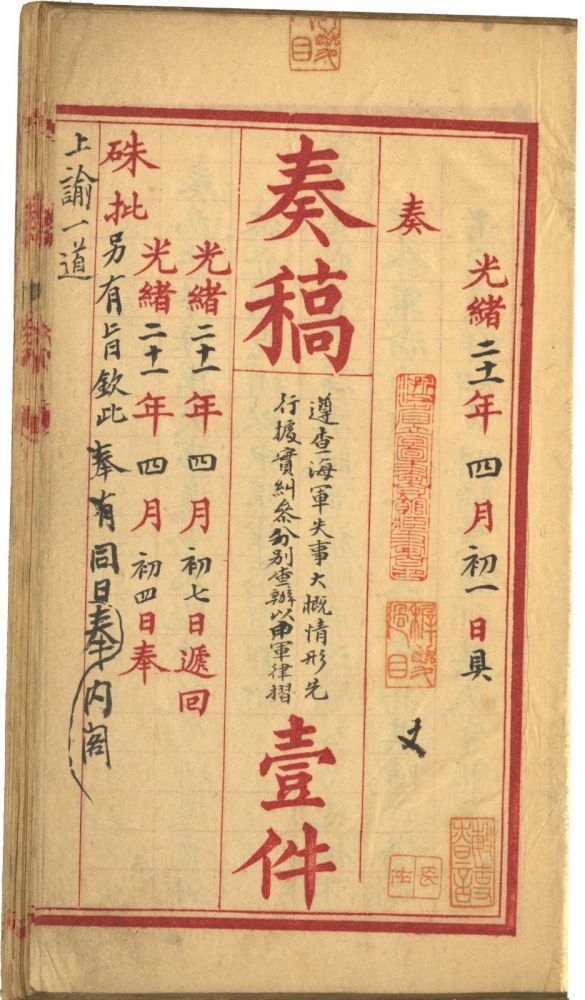 光緒二十一年四月初一日具
奏
奏稿
遵查海軍失事大概情形先
行據實糾參分別查辦以申軍律摺
壹件
光緒二十一年四月初七日遞回
光緒二十一年四月初四日奉
硃批另有旨欽此奉有同日奉內閣
上諭一道